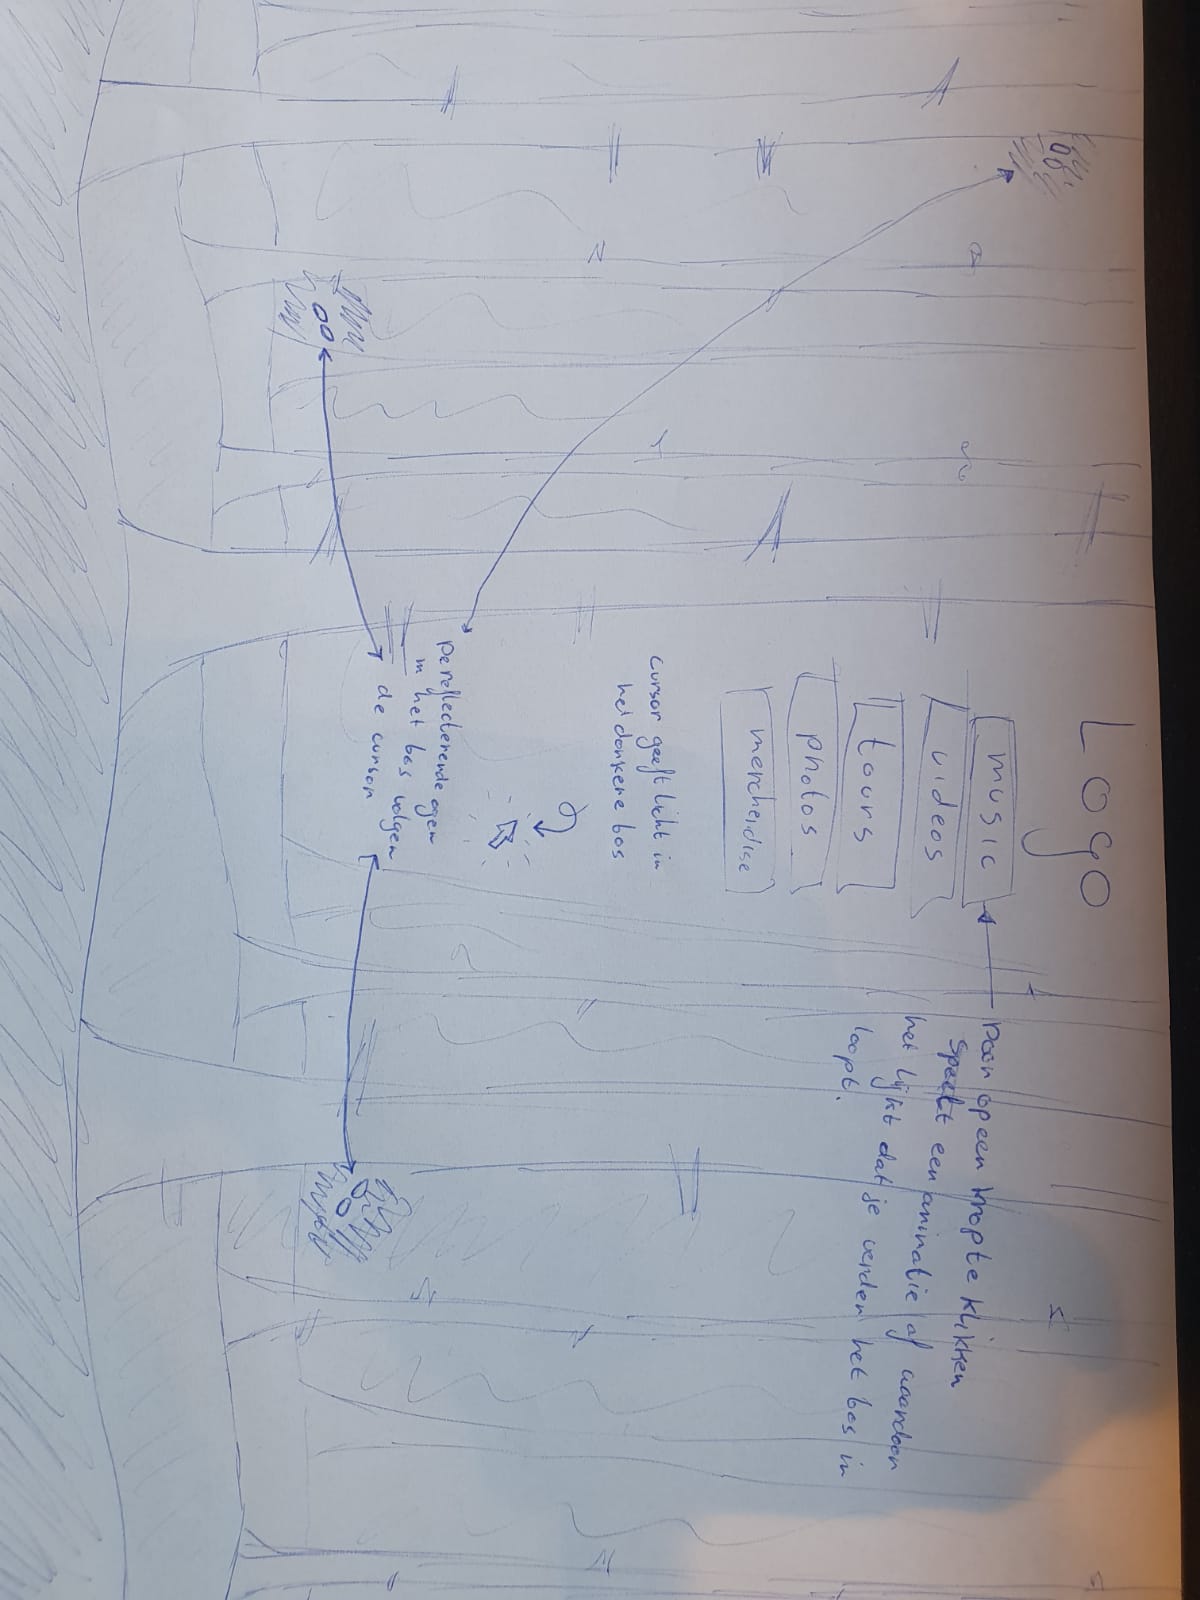 Logo
music
videos
tours
photos
mercheidise
Door op een knop te klikken
speelt een animatie af waardoor
het lijkt dat je verder het bos in
loopt.
cursor geeft licht in
het donkere bos
De reflecterende ogen
in het bos volgen
de cursor